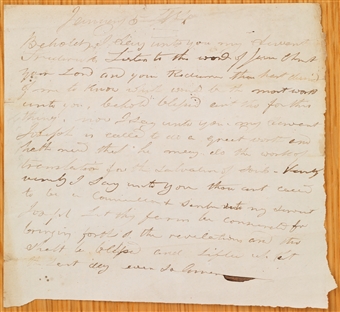 Behold I Say unto you my Servent
Listen to the word of Jesus Christ
your Lord and your Redeemer thou hast desired
of me to know what would be the most worth
unto you behold blessed art thou for this
thing now I Say unto you my servent
Joseph is called to do a great work and
hath need that he may do the work of
translation for the Salvation of Souls Verily
verily I Say unto you thou art called
to be a unto my servent
Joseph Let this person be
bringing forth the revelation and thou
Shalt be blest and lifted up at
day even so Amen